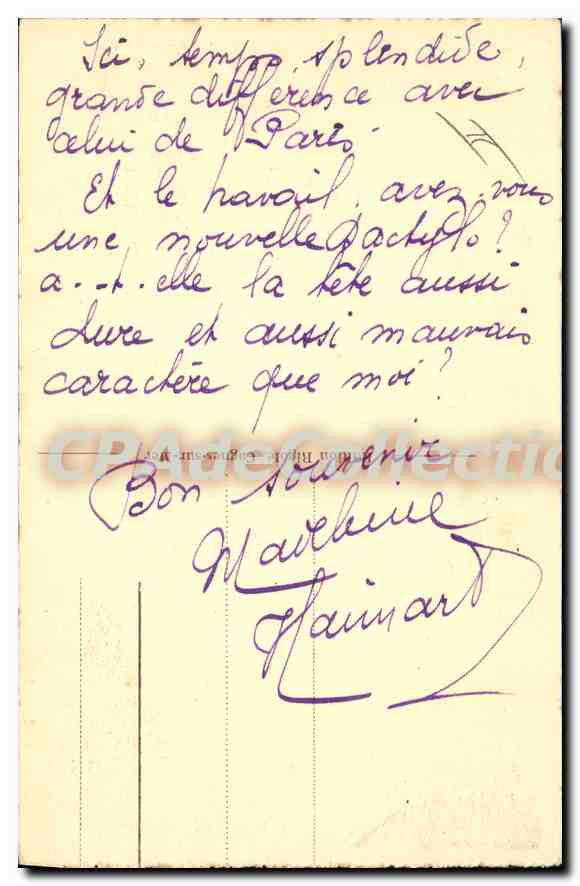 Ici, temps splendide,
grande différence avec
celui de Paris.
Et le travail, avez-vous
une nouvelle dactylo?
a-t-elle la tête aussi
dure et aussi mauvais
caractère que moi?
CPAdeCollection
Édition Rigole Cagnes-sur-Mer
Bon souvenir
Madeleine